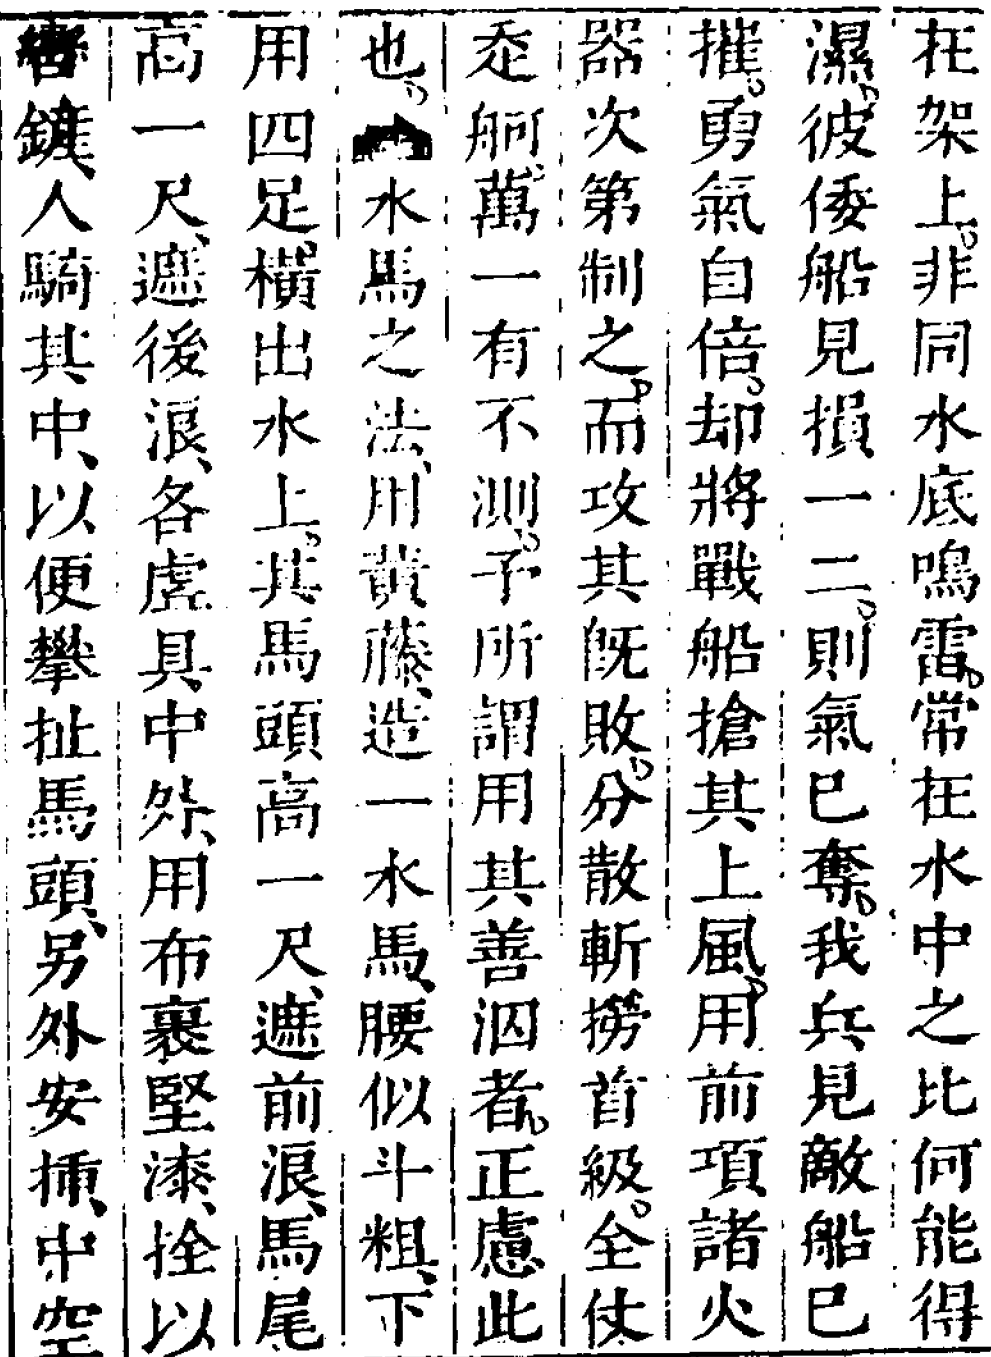 在架上。非同水底鳴雷。常在水中之比何能得
濕。彼倭船見損一二。則氣已奪。我兵見敵船已
摧。勇氣自倍。却將戰船搶其上風。用前項諸火
器次第制之。而攻其旣敗。分散斬撈首級。全仗
柁舸。萬一有不測。予所謂用其善泅者。正慮此
也。水馬之法、用黃藤、造一水馬、腰似斗粗、下
用四足、橫出水上。其馬頭高一尺、遮前浪、馬尾
高一尺、遮後浪、各虛具、中外、用布裹堅漆、拴以
轡鏟、人騎其中、以便攀扯馬頭、另外安揷、中空